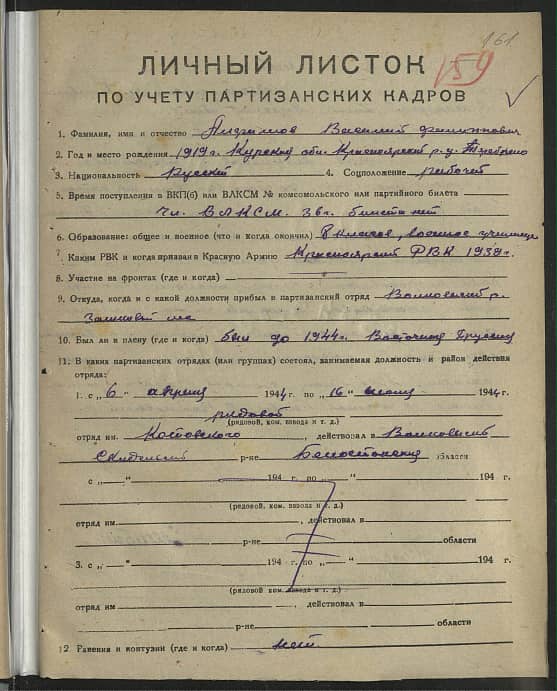 161
159
ЛИЧНЫЙ ЛИСТОК
ПО УЧЕТУ ПАРТИЗАНСКИХ КАДРОВ
1. Фамилия, имя и отчество Василий Филиппович
2. Год и место рождения 1919 г. Курская обл. Красноярский р-н
3. Национальность Русский 4. Соцположение рабочий
5. Время поступления в ВКП(б) или ВЛКСМ № комсомольского или партийного билета
Чл. ВЛКСМ. 36 г. билета нет
6. Образование: общее и военное (что и когда окончил) 8 классов, военное училище
7. Каким РВК и когда призван в Красную Армию Красноярский РВК 1939 г.
8. Участие на фронтах (где и когда)
9. Откуда, когда и с какой должности прибыл в партизанский отряд Волковыский р.
10. Был ли в плену (где и когда) был до 1944 г. Восточная Пруссия
11. В каких партизанских отрядах (или группах) состоял, занимаемая должность и район действия
отряда:
1. с „ 6 “ апреля 1944 г. по „ 16 “ июля 1944 г.
рядовой
(рядовой, ком. взвода и т. д.)
отряд им. Котовского, действовал в Волковыск
р-не Белостокская области
с „ “ 194 г. по „ “ 194 г.
(рядовой, ком. взвода и т. д.)
отряд им. , действовал в
р-не области
3. с „ “ 194 г. по „ “ 194 г.
(рядовой, ком. взвода и т. д.)
отряд им. , действовал в
р-не области
12 Ранения и контузии (где и когда) нет